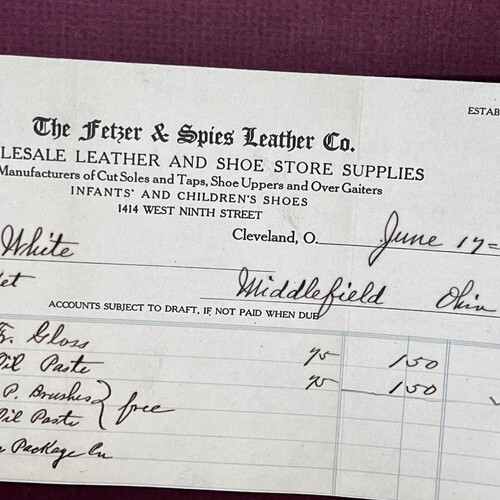 ESTAB
The Fetzer & Spies Leather Co.
LESALE LEATHER AND SHOE STORE SUPPLIES
Manufacturers of Cut Soles and Taps, Shoe Uppers and Over Gaiters
INFANTS' AND CHILDREN'S SHOES
1414 WEST NINTH STREET
Cleveland, O. June 17=
White
et Middlefield Ohio
ACCOUNTS SUBJECT TO DRAFT, IF NOT PAID WHEN DUE
Fr. Gloss 75 1 50
Oil Paste 75 1 50
P. Brushes } free
Oil Paste
Package